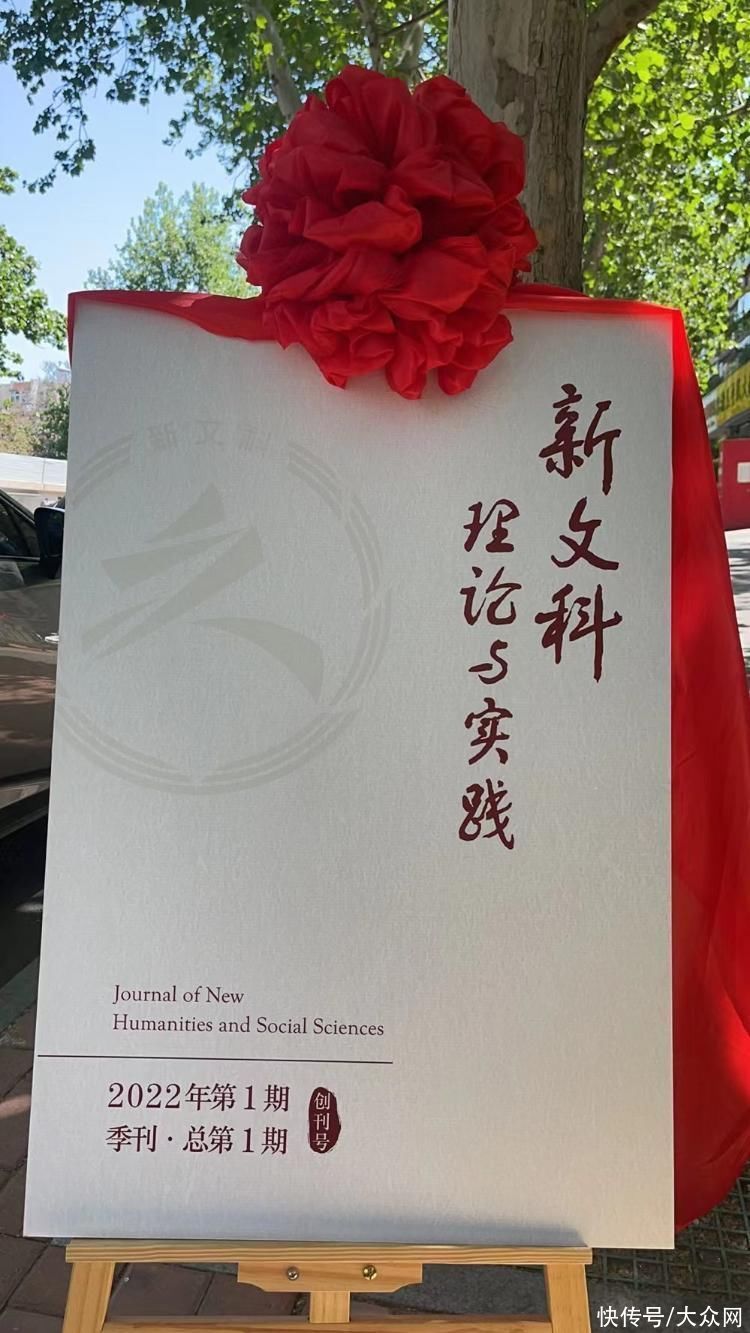 新文科
新文科
理论与实践
Journal of New
Humanities and Social Sciences
2022年第1期
季刊·总第1期
创刊号
快传号/大众网